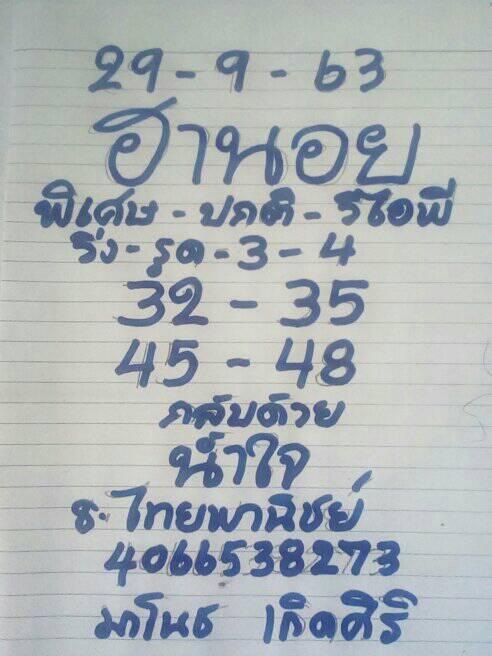 29-9-63
ฮานอย
พิเศษ-ปกติ-วีไอพี
วิ่ง-รูด-3-4
32-35
45-48
กลับด้วย
น้ำใจ
ธ.ไทยพานิชย์
4066538273
มาโนช เกิดศิริ